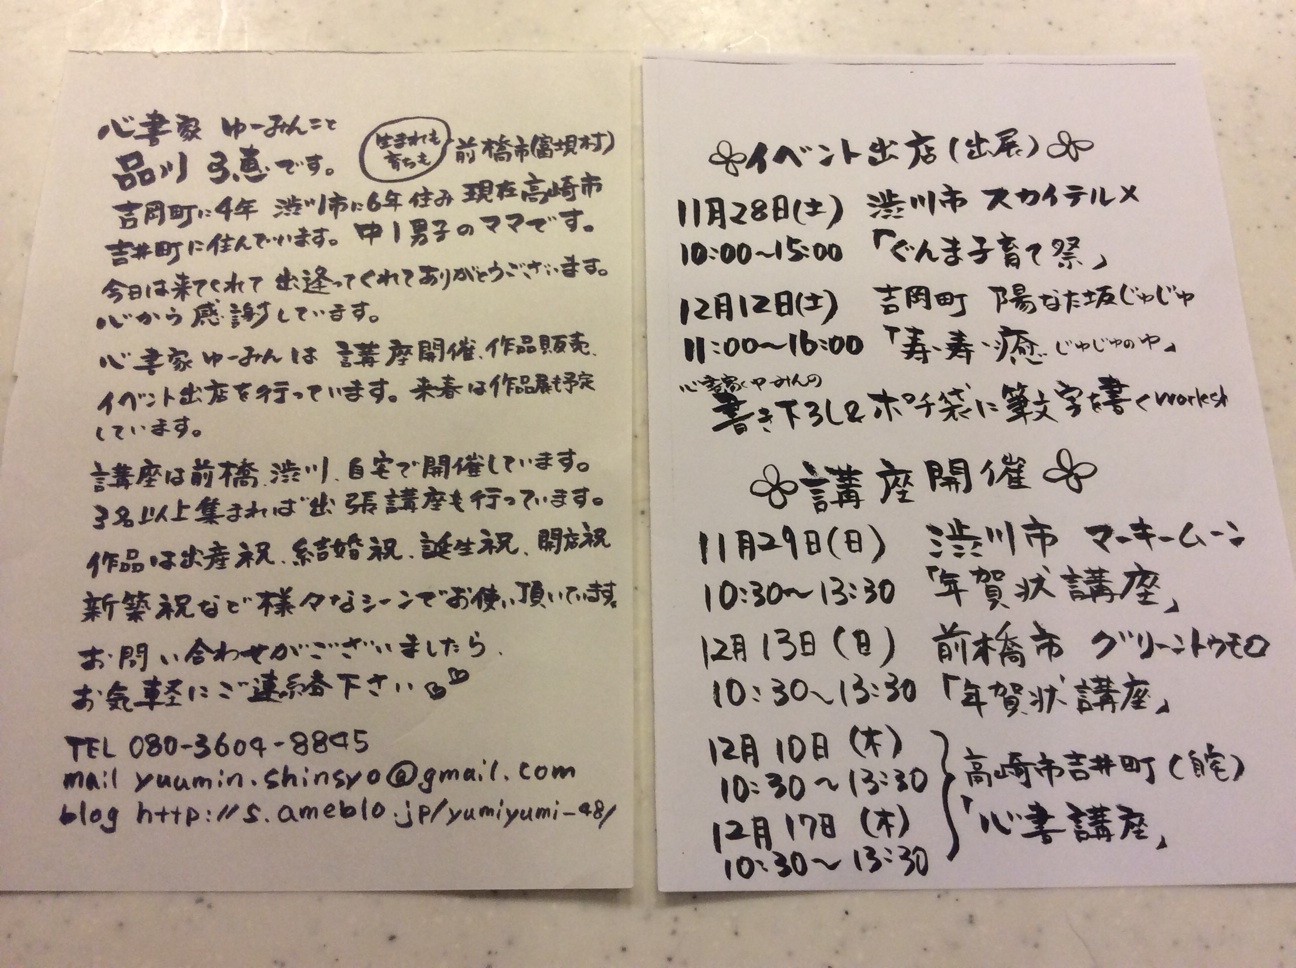 心書家 ゆーみんこと
品川 弓恵です。
生まれも
育ちも
前橋市(富坝村)
吉岡町に4年 渋川市に6年住み 現在高崎市
吉井町に住んでいます。中1男子のママです。
今日は来てくれて 出逢ってくれてありがとうございます。
心から感謝しています。
心書家 ゆーみんは 講座開催、作品販売、
イベント出店を行っています。来春は作品展も予定
しています。
講座は前橋、渋川、自宅で開催しています。
3名以上集まれば出張講座も行っています。
作品は出産祝、結婚祝、誕生祝、開店祝
新築祝など様々なシーンでお使い頂いています。
お問い合わせがございましたら、
お気軽にご連絡下さい
TEL 080-3604-8845
mail yuumin.shinsyo@gmail.com
blog http://s.ameblo.jp/yumiyumi-48/
イベント出店(出展)
11月28日(土) 渋川市 スカイテルメ
10:00~15:00 「ぐんま子育て祭」
12月12日(土) 吉岡町 陽なた坂じゅじゅ
11:00~16:00 「寿・寿・癒 じゅじゅのゆ」
心書家ゆーみんの
書き下ろし&ポチ袋に筆文字を書くworksh
講座開催
11月29日(日) 渋川市 マーキームーン
10:30~13:30 「年賀状講座」
12月13日(日) 前橋市 グリーントウモロ
10:30~13:30 「年賀状講座」
12月10日(木)
10:30~13:30
12月17日(木)
10:30~13:30
高崎市吉井町(自宅)
「心書講座」